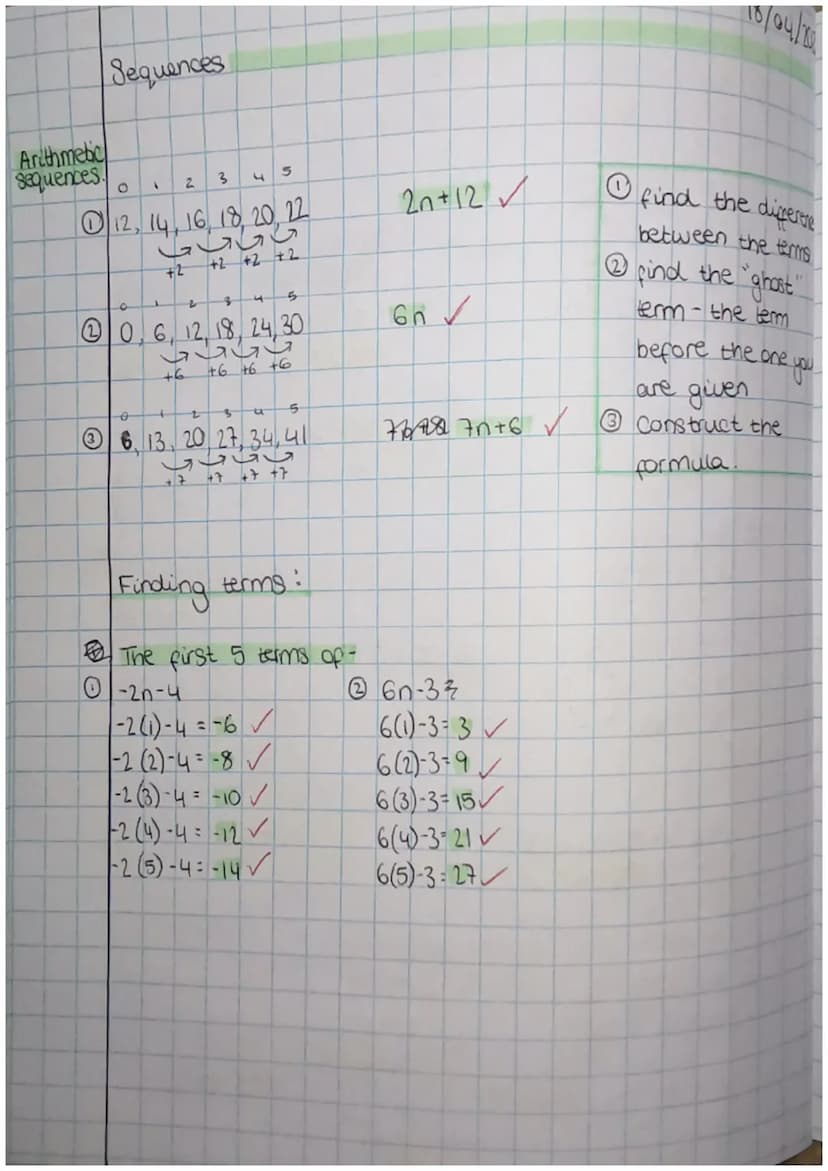 18/04/202
Sequences
Arithmetic
sequences.
0 1 2 3 4 5
① 12, 14, 16, 18, 20, 22
+2 +2 +2 +2
2n+12 ✓
0 1 2 3 4 5
② 0, 6, 12, 18, 24, 30
+6 +6 +6 +6
6n ✓
0 1 2 3 4 5
③ 6, 13, 20, 27, 34, 41
+7 +7 +7 +7
7n+6 ✓
① find the difference
between the terms
② find the "ghost"
term - the term
before the one you
are given
③ Construct the
formula.
Finding terms:
The first 5 terms of-
① -2n-4
-2(1)-4 = -6 ✓
-2(2)-4= -8 ✓
-2(3)-4 = -10 ✓
-2(4)-4 = -12 ✓
-2(5)-4= -14 ✓
② 6n-3
6(1)-3=3 ✓
6(2)-3=9 ✓
6(3)-3=15 ✓
6(4)-3=21 ✓
6(5)-3=27 ✓